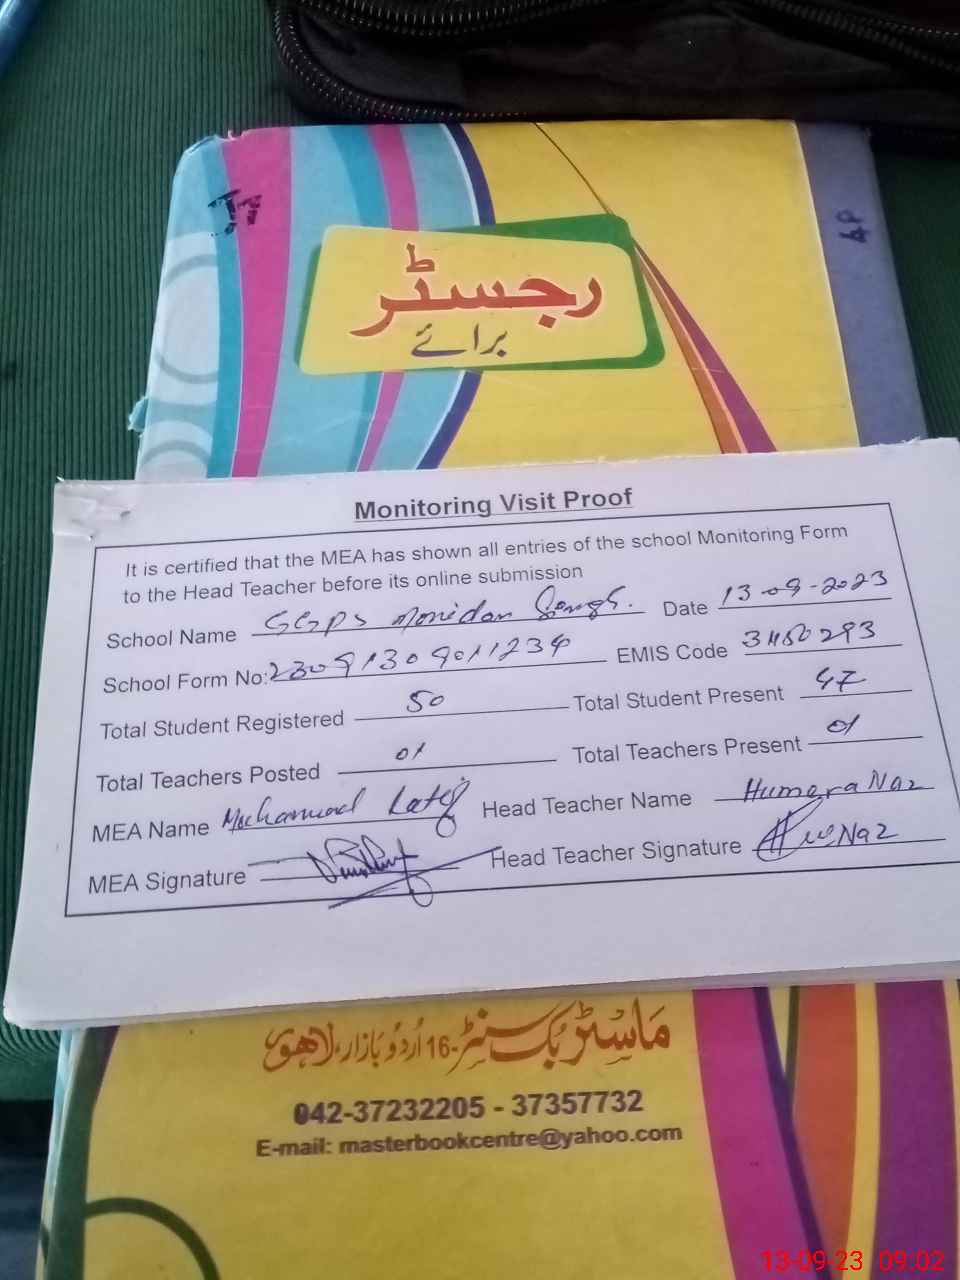 رجسٹر
برائے
Monitoring Visit Proof
It is certified that the MEA has shown all entries of the school Monitoring Form
to the Head Teacher before its online submission
School Name GGPS Date 13-09-2023
School Form No: EMIS Code
Total Student Registered 50 Total Student Present 47
Total Teachers Posted 01 Total Teachers Present 01
MEA Name Mohammad Latif Head Teacher Name Humera Naz
MEA Signature Head Teacher Signature Naz
ماسٹر بک سنٹر 16-اُردُو بازار، لاھور
042-37232205 - 37357732
E-mail: masterbookcentre@yahoo.com
13-09-23 09:02